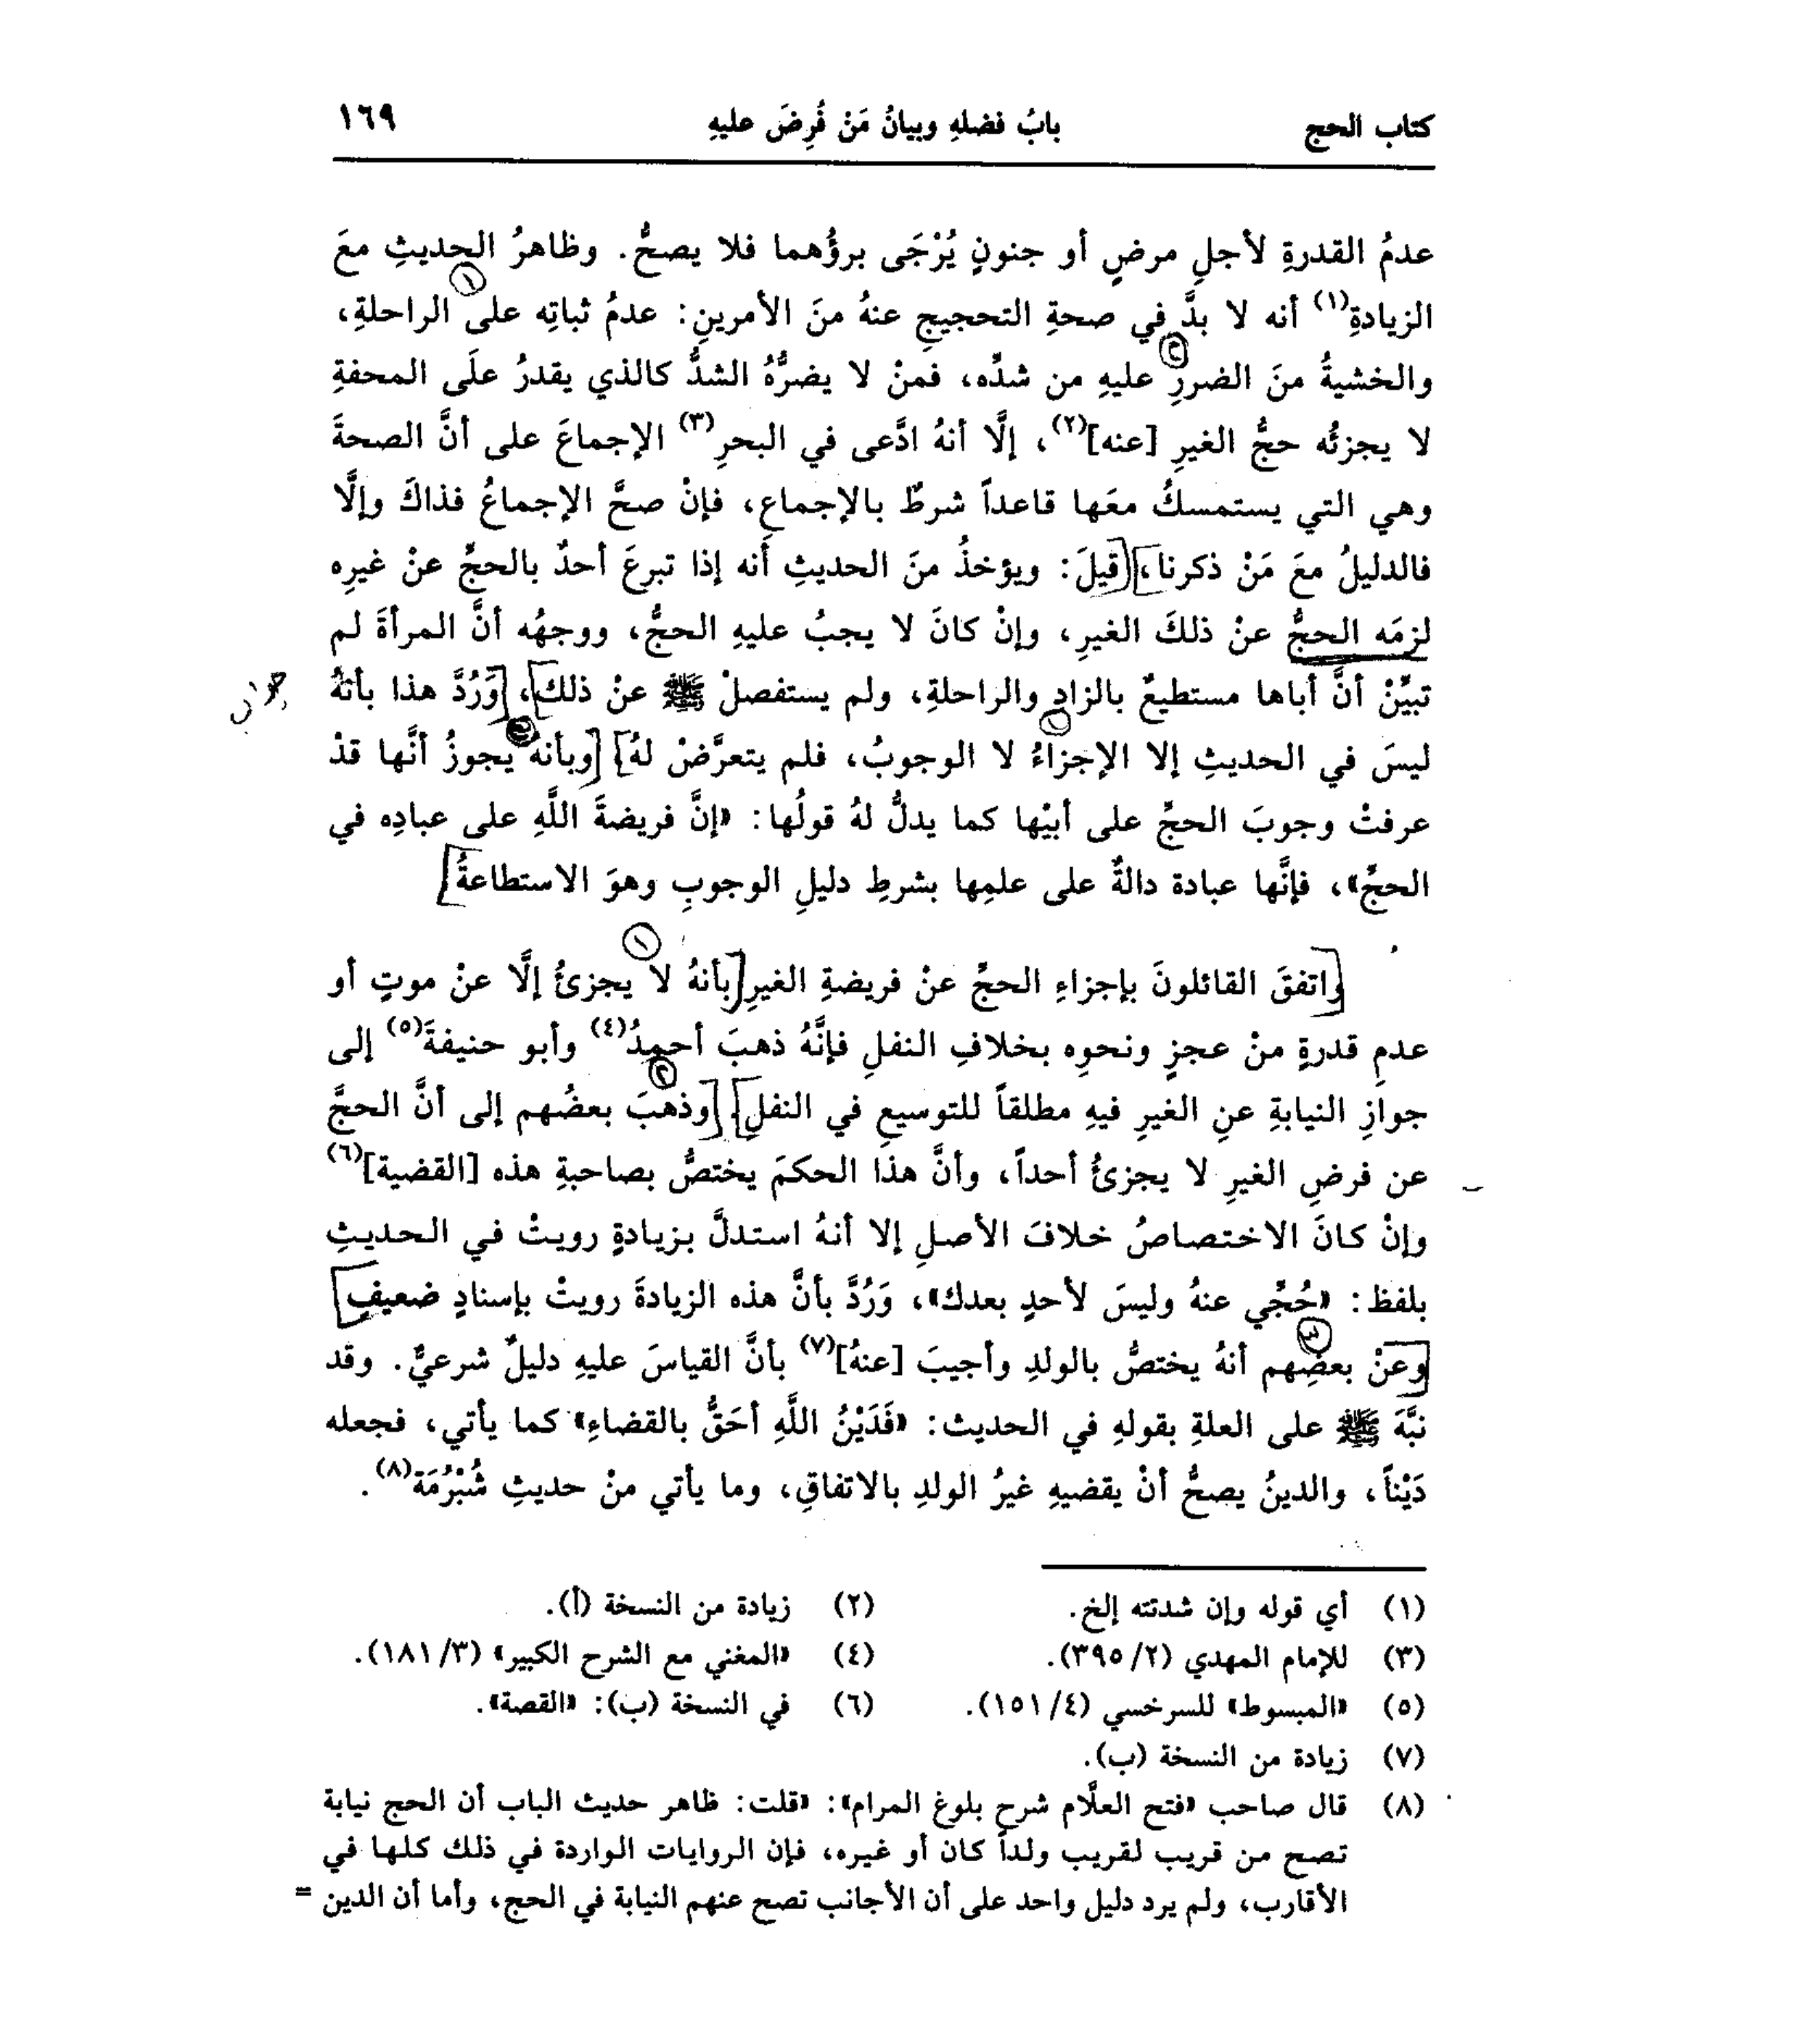 كتاب الحج
بابُ فضلهِ وبيانُ مَنْ فُرِضَ عليهِ
١٦٩
عدمُ القدرةِ لأجلِ مرضٍ أو جنونٍ يُرْجَى برؤُهما فلا يصحُّ. وظاهرُ الحديثِ معَ
الزيادةِ(١) أنه لا بدَّ في صحةِ التحجيجِ عنهُ منَ الأمرينِ: عدمُ ثباتِه على الراحلةِ،
والخشيةُ منَ الضررِ عليهِ من شدِّه، فمنْ لا يضرُّهُ الشدُّ كالذي يقدرُ علَى المحفةِ
لا يجزئُه حجُّ الغيرِ [عنه](٢)، إلَّا أنهُ ادَّعى في البحرِ(٣) الإجماعَ على أنَّ الصحةَ
وهي التي يستمسكُ معَها قاعداً شرطٌ بالإجماعِ، فإنْ صحَّ الإجماعُ فذاكَ وإلَّا
فالدليلُ معَ مَنْ ذكرنا، قيلَ: ويؤخذُ منَ الحديثِ أنه إذا تبرعَ أحدٌ بالحجِّ عنْ غيرِه
لزمَه الحجُّ عنْ ذلكَ الغيرِ، وإنْ كانَ لا يجبُ عليهِ الحجُّ، ووجهُه أنَّ المرأةَ لم
تبيِّنْ أنَّ أباها مستطيعٌ بالزادِ والراحلةِ، ولم يستفصلْ ﷺ عنْ ذلك، وَرُدَّ هذا بأنهُ
ليسَ في الحديثِ إلا الإجزاءُ لا الوجوبُ، فلم يتعرَّضْ لهُ وبأنه يجوزُ أنَّها قدْ
عرفتْ وجوبَ الحجِّ على أبيْها كما يدلُّ لهُ قولُها: «إنَّ فريضةَ اللَّهِ على عبادِه في
الحجِّ»، فإنَّها عبادة دالةٌ على علمِها بشرطِ دليلِ الوجوبِ وهوَ الاستطاعةُ
واتفقَ القائلونَ بإجزاءِ الحجِّ عنْ فريضةِ الغيرِ بأنهُ لا يجزئُ إلَّا عنْ موتٍ أو
عدمِ قدرةٍ منْ عجزٍ ونحوِه بخلافِ النفلِ فإنَّهُ ذهبَ أحمدُ(٤) وأبو حنيفةَ(٥) إلى
جوازِ النيابةِ عنِ الغيرِ فيهِ مطلقاً للتوسيعِ في النفلِ. وذهبَ بعضُهم إلى أنَّ الحجَّ
عن فرضِ الغيرِ لا يجزئُ أحداً، وأنَّ هذا الحكمَ يختصُّ بصاحبةِ هذه [القضية](٦)
وإنْ كانَ الاختصاصُ خلافَ الأصلِ إلا أنهُ استدلَّ بزيادةٍ رويتْ في الحديثِ
بلفظ: «حُجِّي عنهُ وليسَ لأحدٍ بعدك»، وَرُدَّ بأنَّ هذه الزيادةَ رويتْ بإسنادٍ ضعيفٍ
وعنْ بعضِهم أنهُ يختصُّ بالولدِ وأجيبَ [عنهُ](٧) بأنَّ القياسَ عليهِ دليلٌ شرعيٌّ. وقد
نبَّهَ ﷺ على العلةِ بقولهِ في الحديث: «فَدَيْنُ اللَّهِ أحَقُّ بالقضاءِ» كما يأتي، فجعله
دَيْناً، والدينُ يصحُّ أنْ يقضيهِ غيرُ الولدِ بالاتفاقِ، وما يأتي منْ حديثِ شُبْرُمَة(٨).
(١) أي قوله وإن شددته إلخ.
(٢) زيادة من النسخة (أ).
(٣) للإمام المهدي (٣٩٥/٢).
(٤) «المغني مع الشرح الكبير» (١٨١/٣).
(٥) «المبسوط» للسرخسي (١٥١/٤).
(٦) في النسخة (ب): «القصة».
(٧) زيادة من النسخة (ب).
(٨) قال صاحب «فتح العلَّام شرح بلوغ المرام»: «قلت: ظاهر حديث الباب أن الحج نيابة
تصح من قريب لقريب ولداً كان أو غيره، فإن الروايات الواردة في ذلك كلها في
الأقارب، ولم يرد دليل واحد على أن الأجانب تصح عنهم النيابة في الحج، وأما أن الدين =